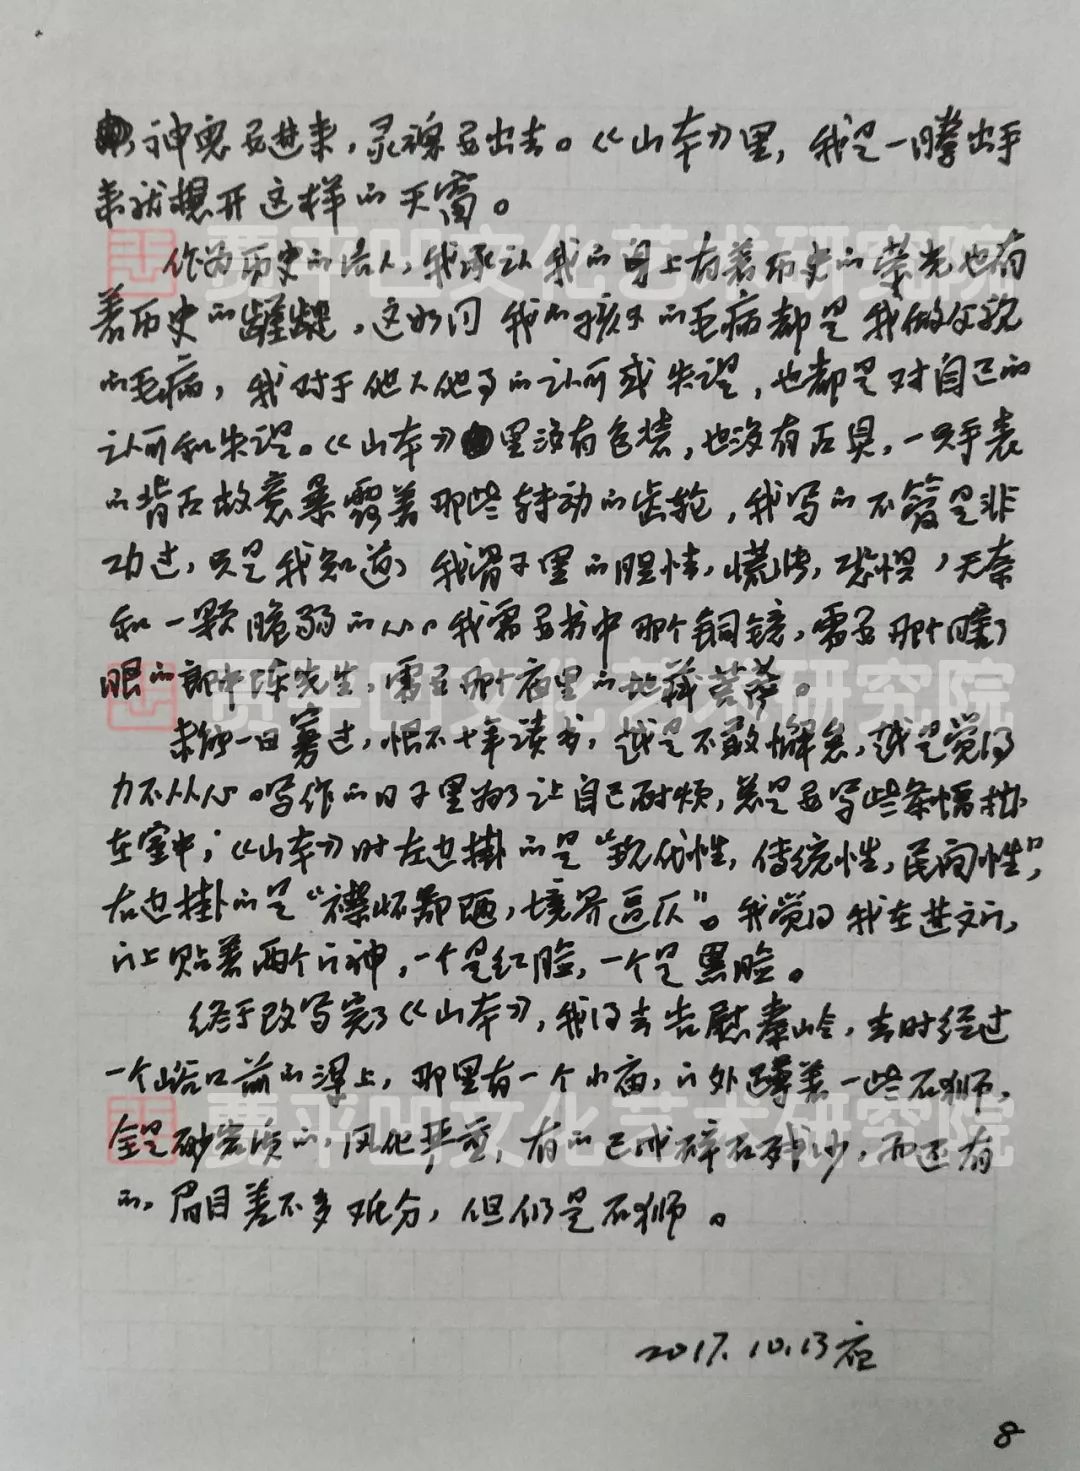 神鬼要进来，灵魂要出去。《山本》里，我是一腾出手
来就想开这样的天窗。
作为历史的后人，我承认我的身上有着历史的荣光也有
着历史的龌龊，这如同我的孩子的毛病都是我做父亲
的毛病，我对于他人他事的认可或失误，也都是对自己的
认可和失误。《山本》里没有包装，也没有面具，一只手表
的背面故意暴露着那些转动的齿轮，我写的不管是非
功过，只是我知道了我骨子里的胆怯，慌张，恐惧，无奈
和一颗脆弱的心。我需要书中那个铜镜，需要那个瞎了
眼的郎中陈先生，需要那个庙里的地藏菩萨。
未能一日寡过，恨不十年读书，越是不敢懈怠，越是觉得
力不从心。写作的日子里为了让自己耐烦，总是要写些条幅挂
在室中，《山本》时左边挂的是“现代性，传统性，民间性”，
右边挂的是“襟怀鄙陋，境界逼仄”。我觉得我在进文门，
门上贴着两个门神，一个是红脸，一个是黑脸。
终于改写完了《山本》，我得去告慰秦岭，去时经过
一个峪口前的梁上，那里有一个小庙，门外蹲着一些石狮，
全是砂岩质的，风化严重，有的已成碎石残沙，而还有
的，眉目差不多难分，但仍是石狮。
2017.10.13夜
8
贾平凹文化艺术研究院
贾平凹文化艺术研究院
贾平凹文化艺术研究院